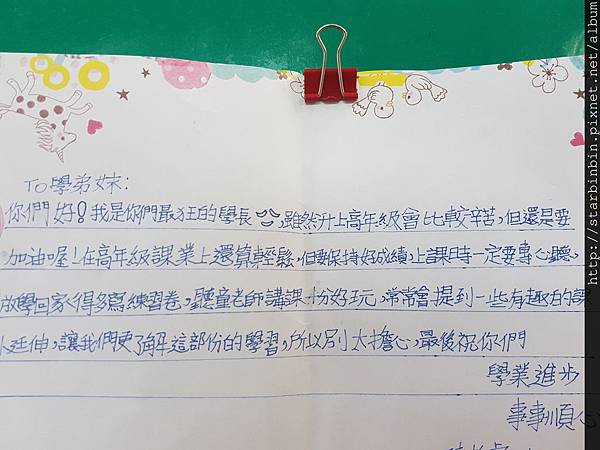 To學弟妹:
你們好!我是你們最狂的學長,雖然升上高年級會比較辛苦,但還是要
加油喔!在高年級課業上還算輕鬆,但要保持好成績,上課時一定要專心聽。
放學回家得多寫練習卷,聽童老師講課十分好玩,常常會提到一些有趣的課
外延伸,讓我們更了解這部份的學習,所以別太擔心,最後祝你們
學業進步
事事順心
http://starbinbin.pixnet.net/album